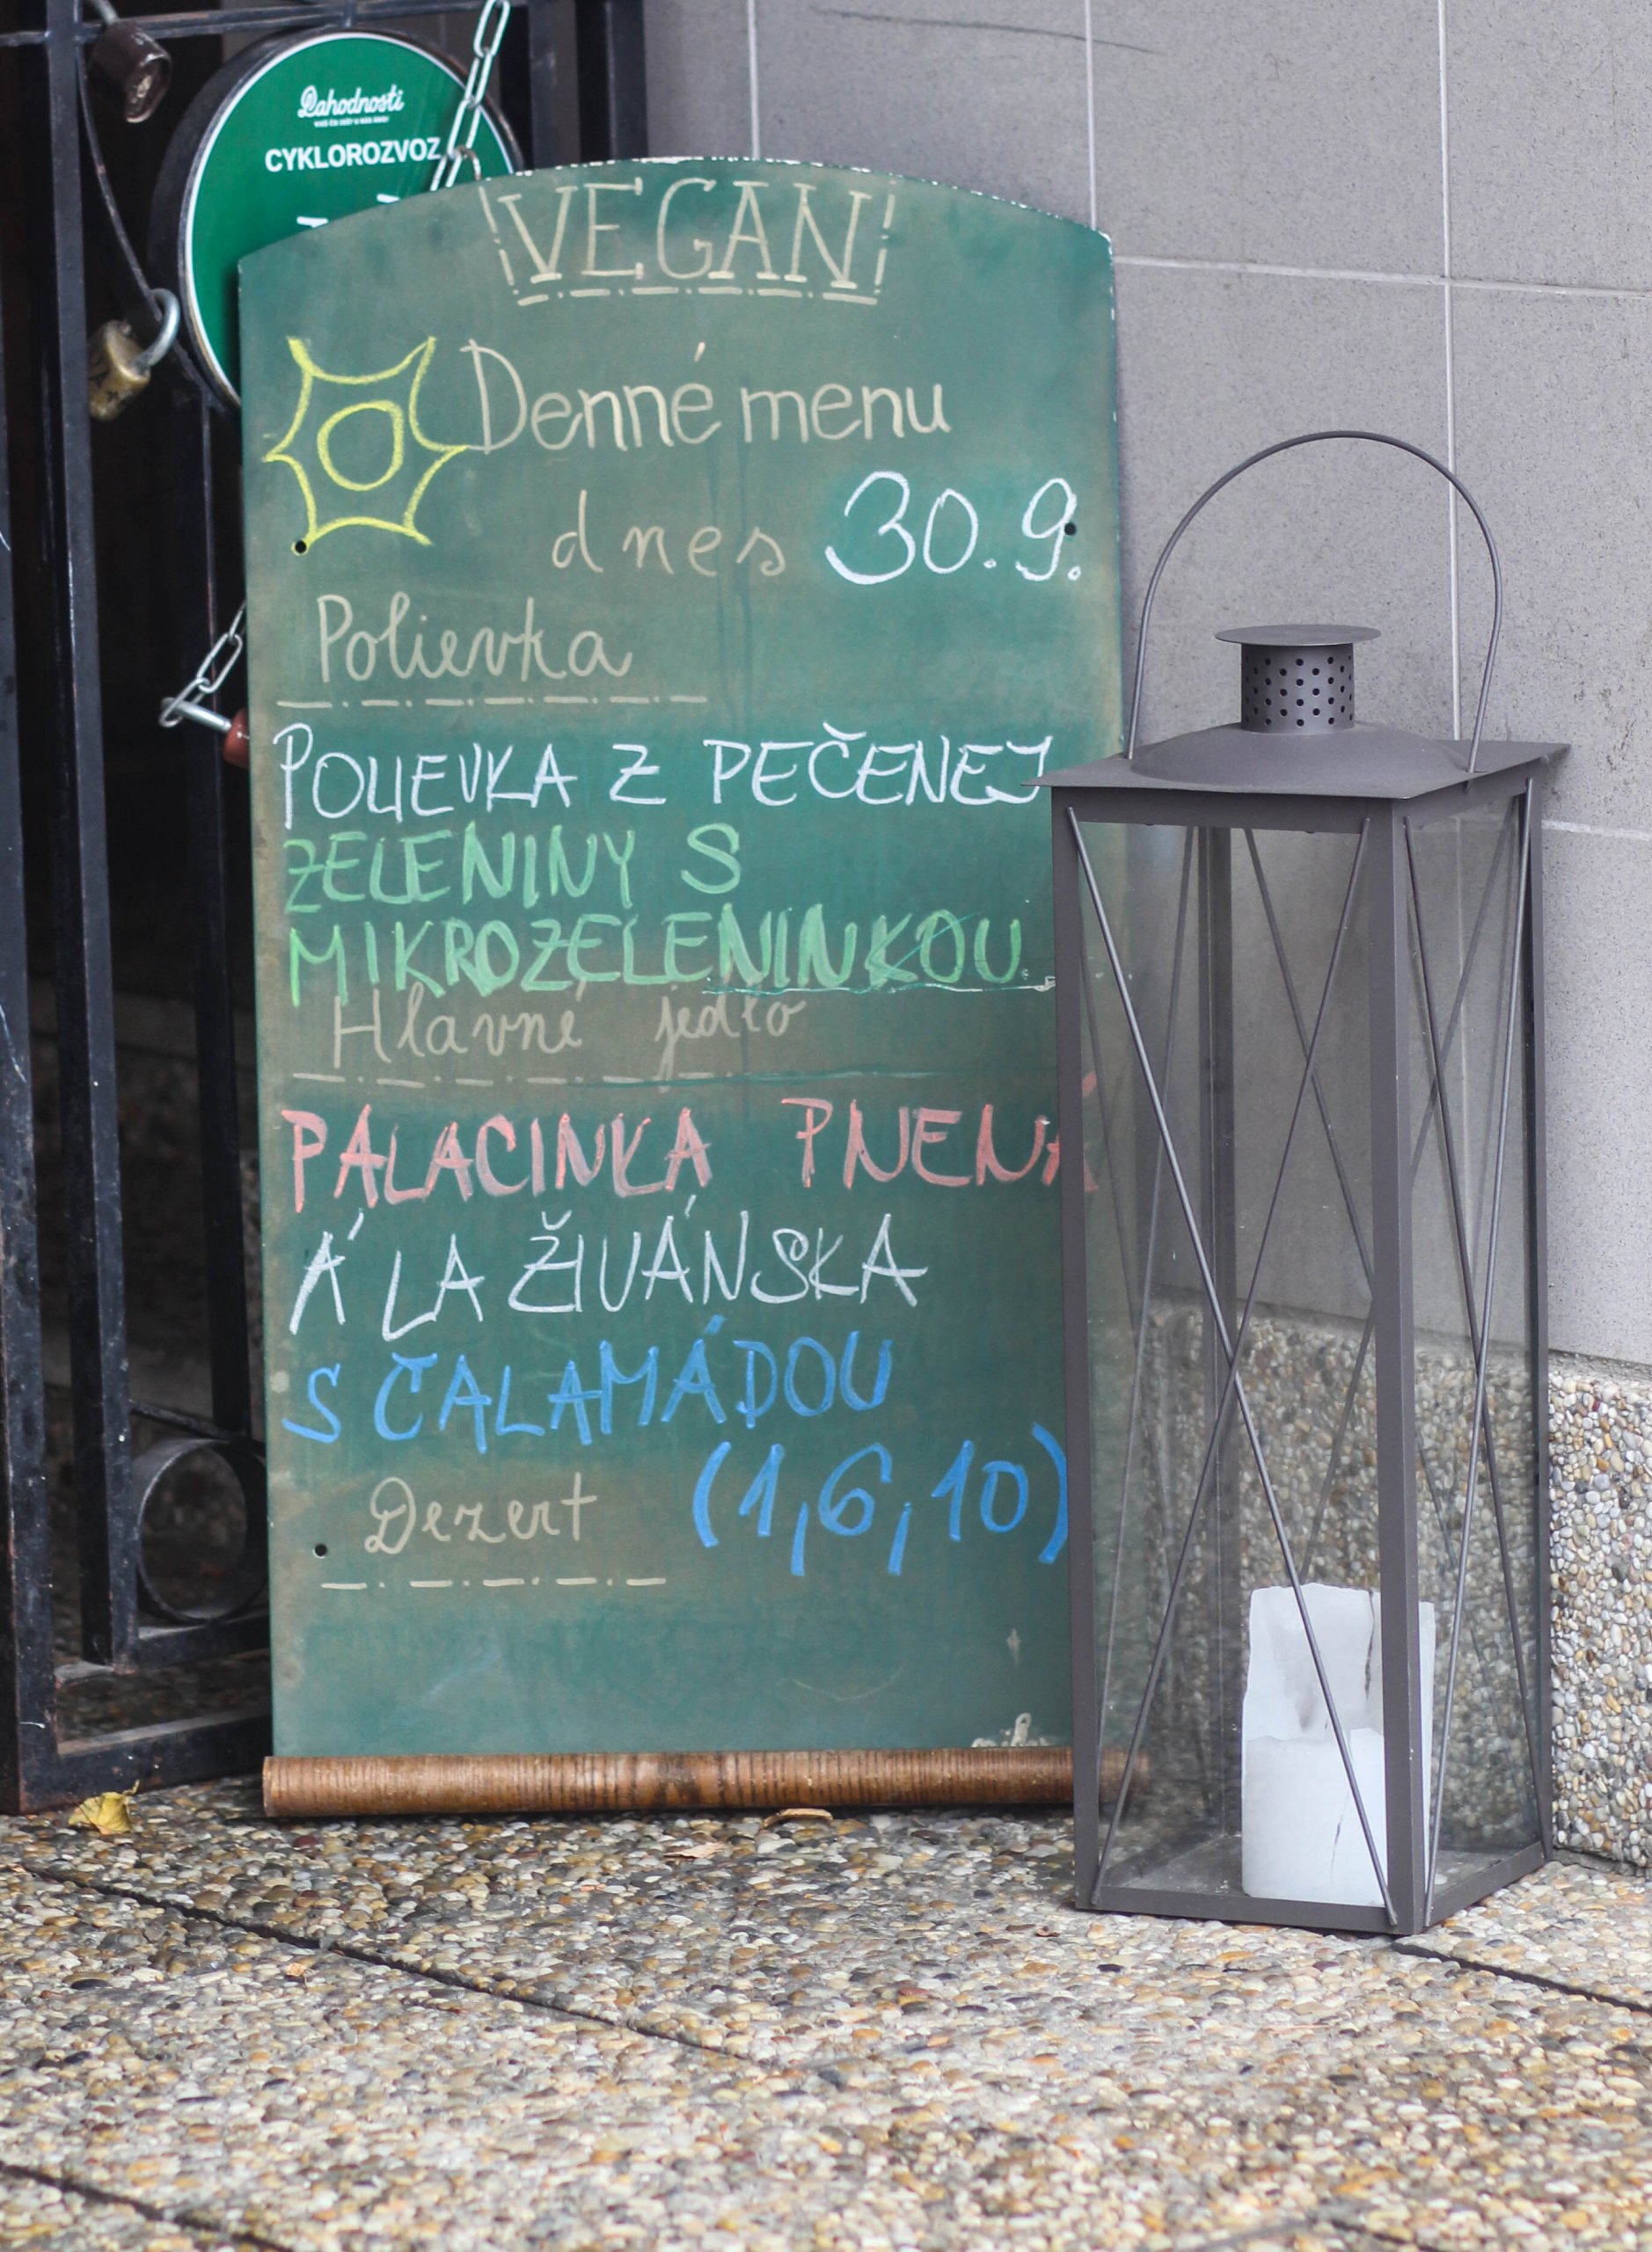 Lahodnosti
CYKLOROZVOZ
VEGAN
Denné menu
dnes 30.9.
Polievka
POLIEVKA Z PEČENEJ
ZELENINY S
MIKROZELENINKOU
Hlavné jedlo
PALACINKA PLNENÁ
Á LA ŽIVÁNSKA
S ČALAMÁDOU
(1,6,10)
Dezert